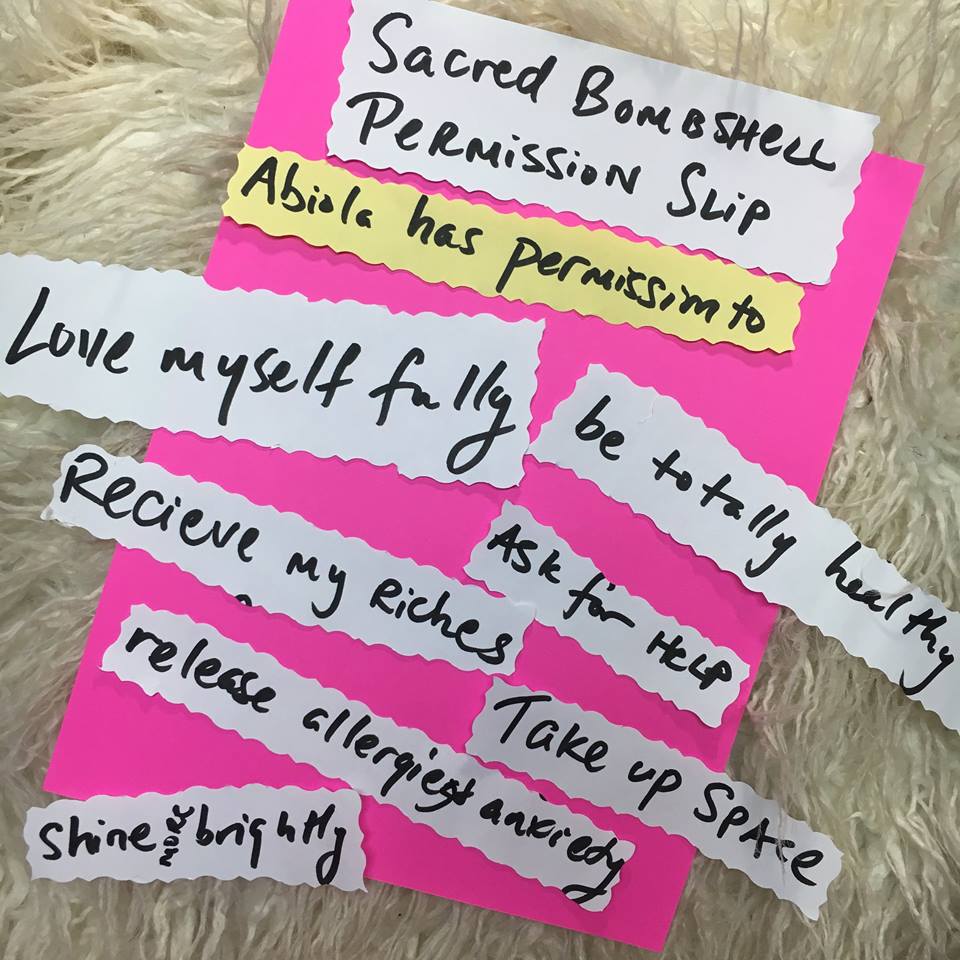 Sacred BOMBSHELL
PERMISSION SLIP
Abiola has permission to
Love myself fully
be totally healthy
Recieve my Riches
Ask for HELP
release allergies+ anxiety
Take up SPACE
Shine MORE brightly